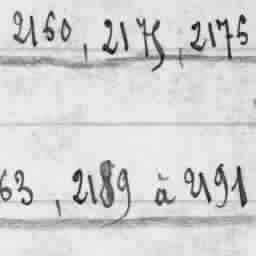 2160, 2175, 2176
63, 2189 à 2191